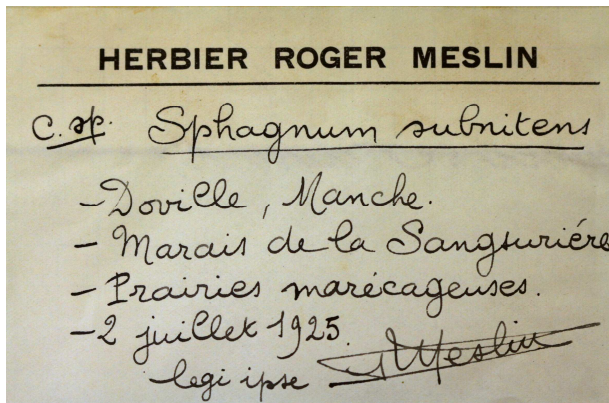 HERBIER ROGER MESLIN
c. sp. Sphagnum subnitens
- Doville, Manche.
- Marais de la Sangsuriére
- Prairies marécageuses.
- 2 juillet 1925
legi ipse Meslin